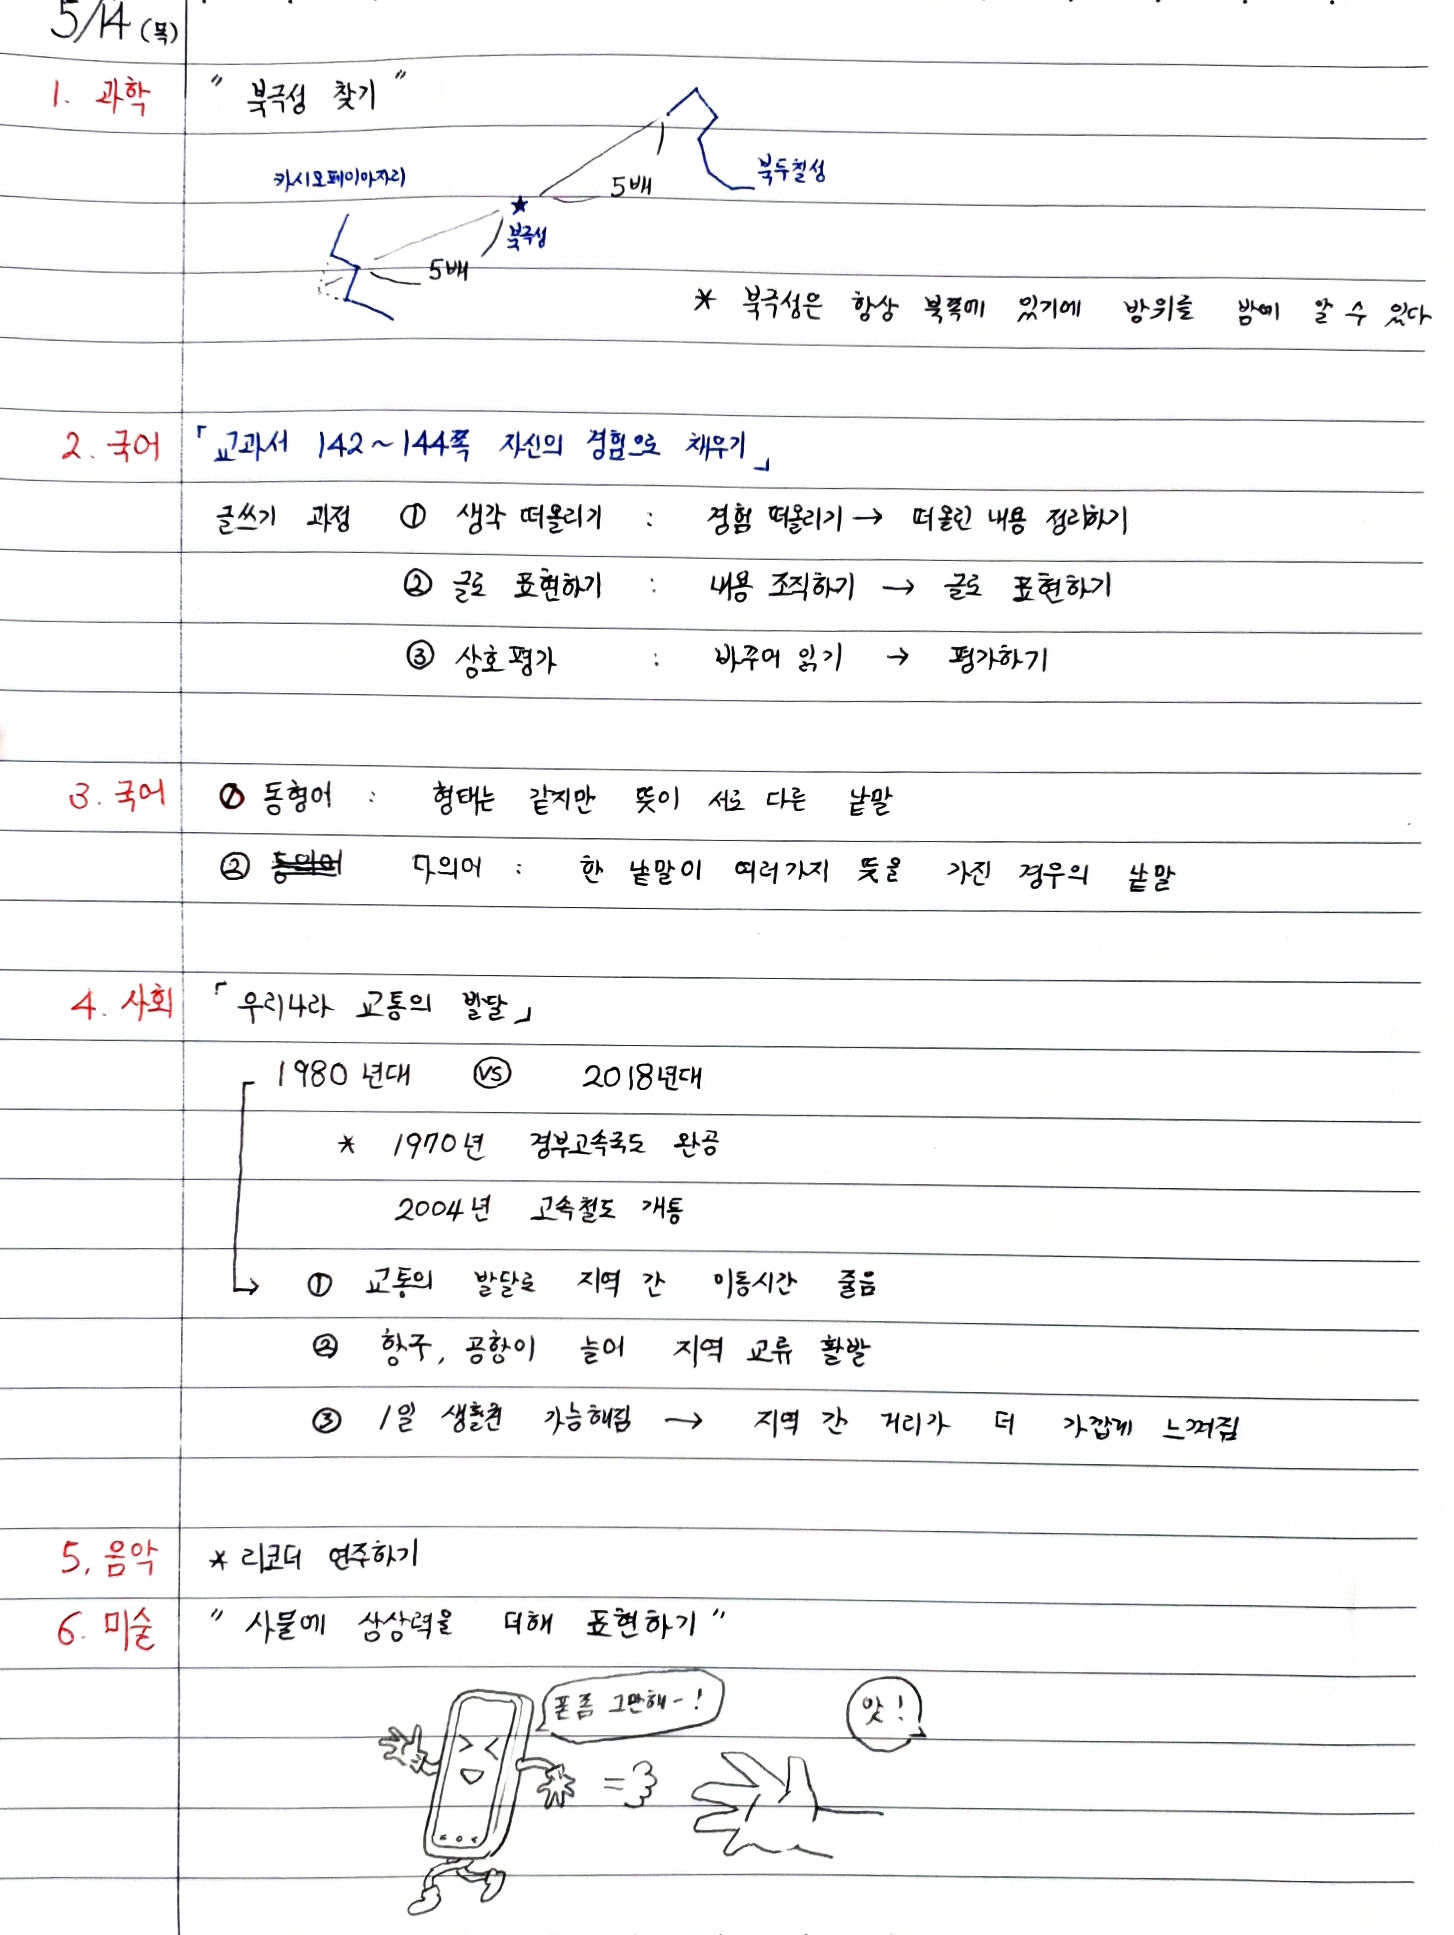 5/14 (목)
1. 과학 " 북극성 찾기 "
카시오페이아자리
5배
북두칠성
북극성
5배
* 북극성은 항상 북쪽에 있기에 방위를 밤에 알 수 있다
2. 국어 「교과서 142~144쪽 자신의 경험으로 채우기」
글쓰기 과정 ① 생각 떠올리기 : 경험 떠올리기 → 떠올린 내용 정리하기
② 글로 표현하기 : 내용 조직하기 → 글로 표현하기
③ 상호평가 : 바꾸어 읽기 → 평가하기
3. 국어 ① 동형어 : 형태는 같지만 뜻이 서로 다른 낱말
② 동의어 다의어 : 한 낱말이 여러가지 뜻을 가진 경우의 낱말
4. 사회 「우리나라 교통의 발달」
1980년대 VS 2018년대
* 1970년 경부고속국도 완공
2004년 고속철도 개통
① 교통의 발달로 지역 간 이동시간 줄음
② 항구, 공항이 늘어 지역 교류 활발
③ 1일 생활권 가능해짐 → 지역 간 거리가 더 가깝게 느껴짐
5. 음악 * 리코더 연주하기
6. 미술 " 사물에 상상력을 더해 표현하기 "
폰 좀 그만해-!
앗!